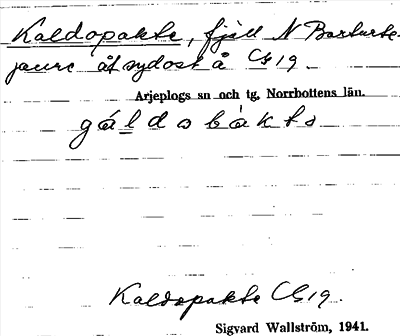 Kaldopakte, fjäll N Barturte-
jaure åt sydost å C19
Arjeplogs sn och tg, Norrbottens län.
gáldobákto
Kaldopakte C19.
Sigvard Wallström, 1941.